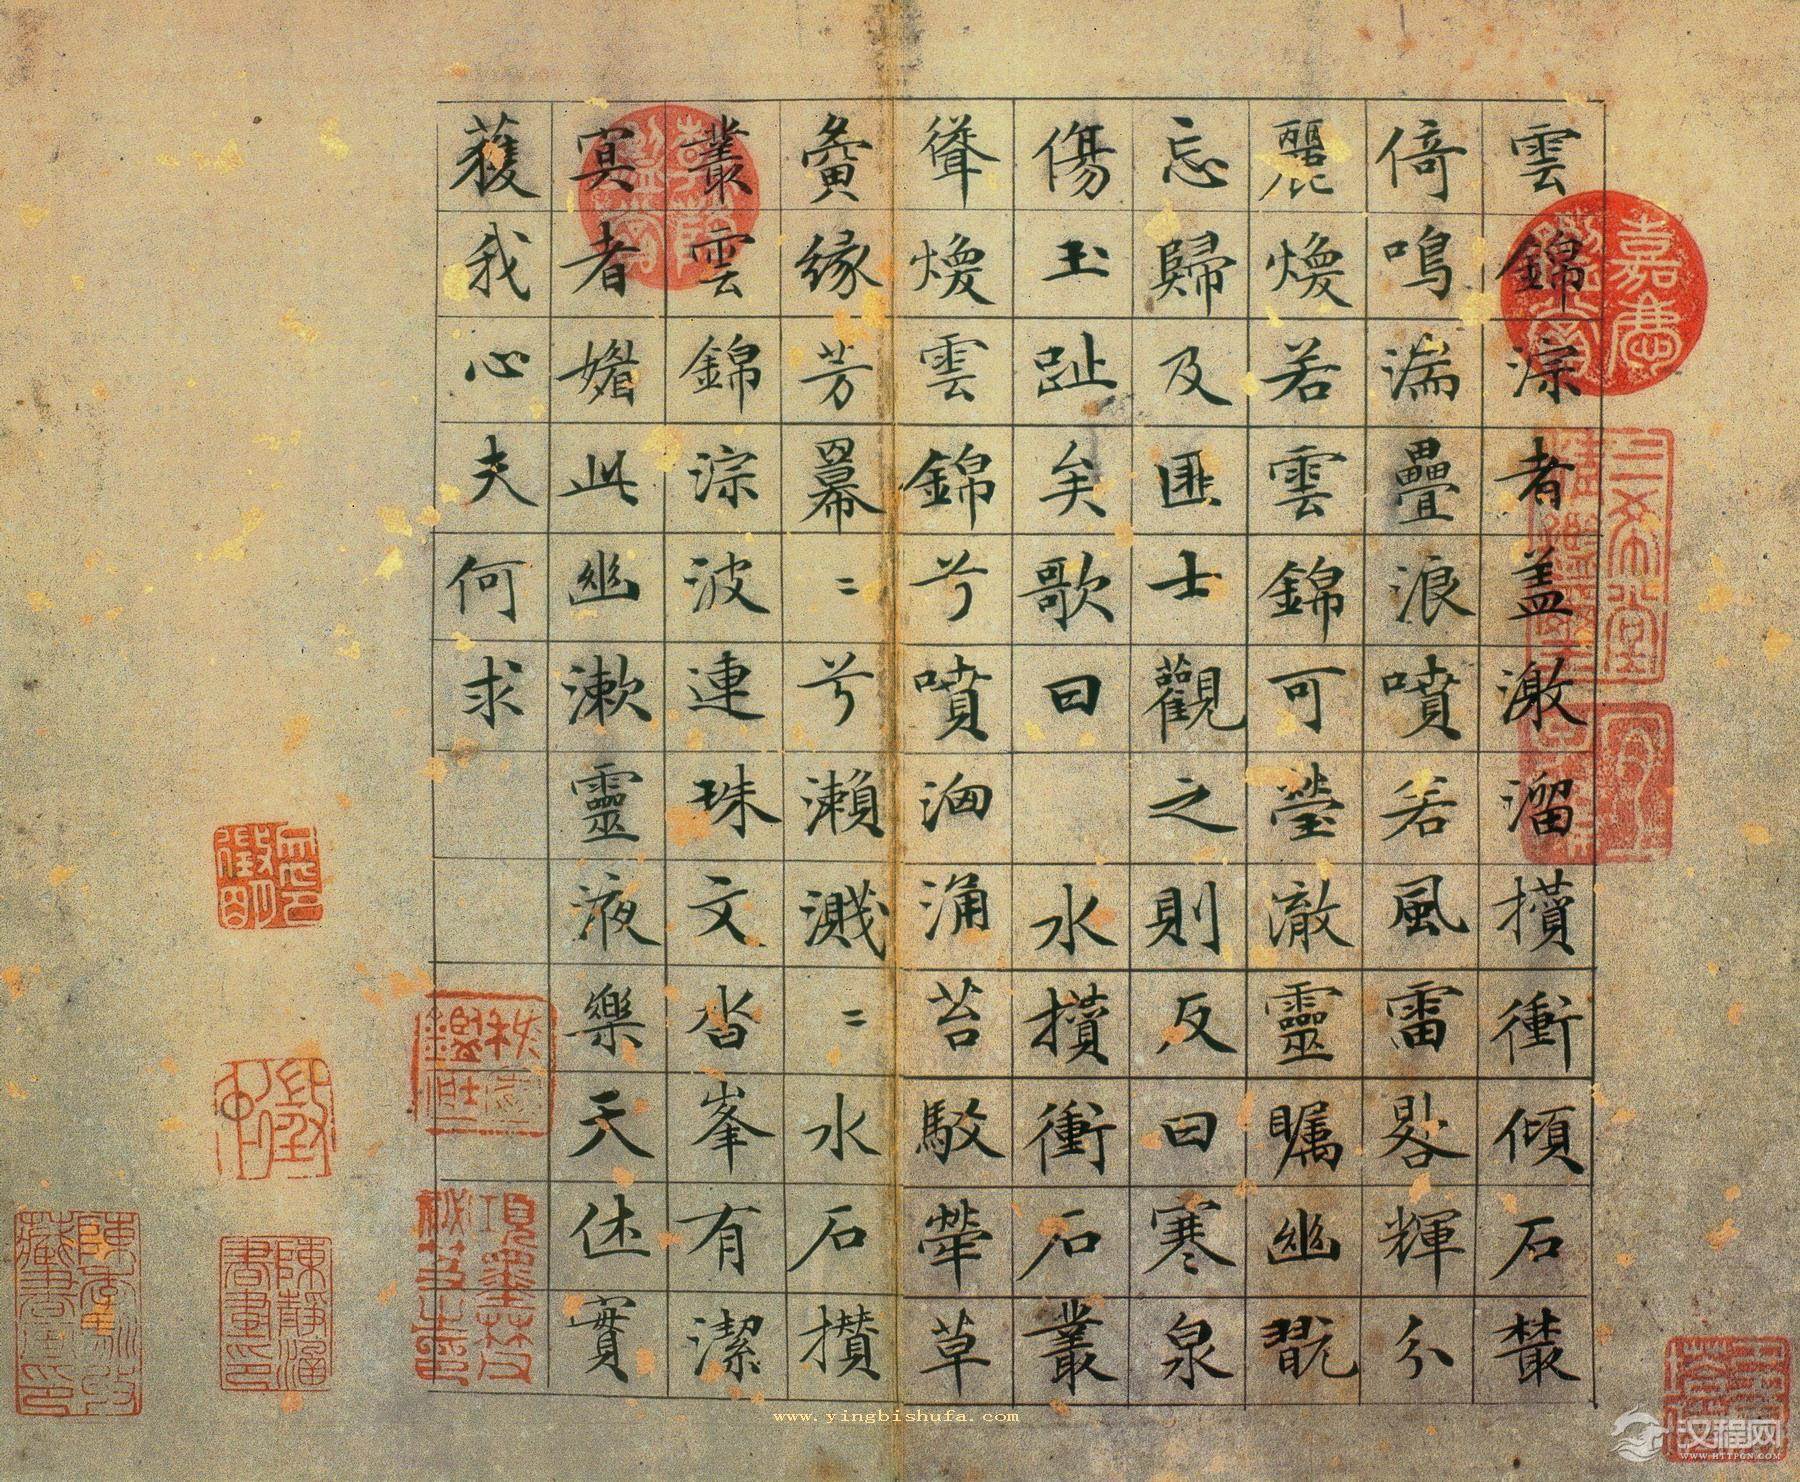 雲錦淙者盖激溜攢衝傾石叢
倚鳴湍疊浪噴若風雷畧輝分
麗煥若雲錦可瑩澈靈矚幽翫
忘歸及匪士觀之則反曰寒泉
傷玉趾矣歌曰 水攢衝石叢
聳煥雲錦兮噴洶涌苔駮犖草
夤緣芳冪〻兮瀨濺〻水石攢
叢雲錦淙波連珠文沓峯有潔
冥者媚此幽漱靈液樂天休實
蒦我心夫何求
www.yingbishufa.com
汉程网
WWW.HTTPCN.COM